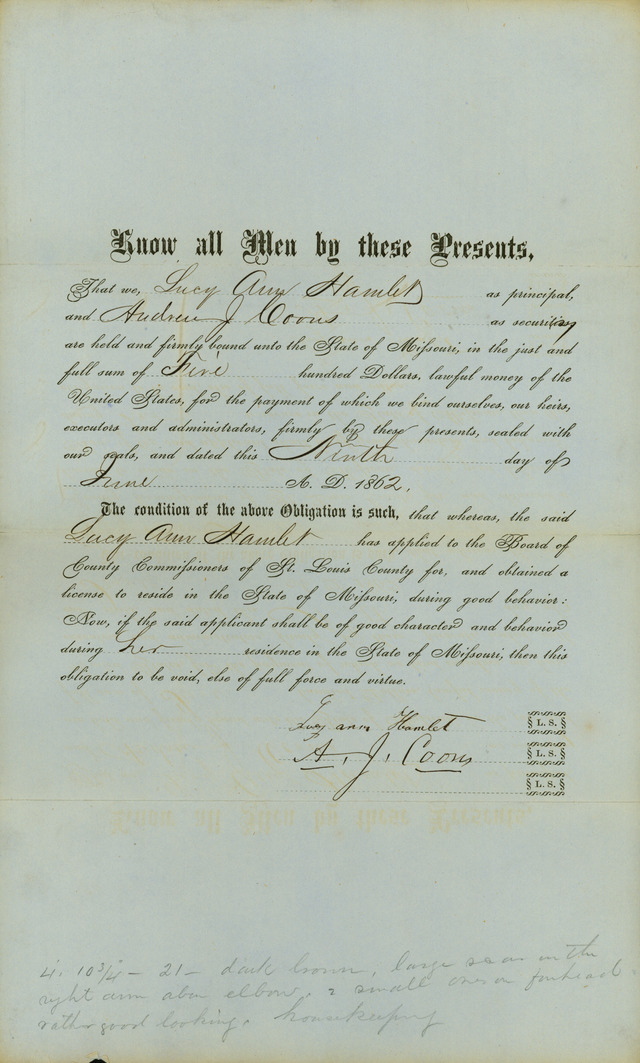 Know all Men by these Presents,
That we, Lucy Ann Hamlet as principal,
and Andrew J Coons as security
are held and firmly bound unto the State of Missouri, in the just and
full sum of Five hundred Dollars, lawful money of the
United States, for the payment of which we bind ourselves, our heirs,
executors and administrators, firmly by these presents, sealed with
our seals, and dated this Ninth day of
June A. D. 1862.
The condition of the above Obligation is such, that whereas, the said
Lucy Ann Hamlet has applied to the Board of
County Commissioners of St. Louis County for, and obtained a
license to reside in the State of Missouri, during good behavior:
Now, if the said applicant shall be of good character and behavior
during her residence in the State of Missouri, then this
obligation to be void, else of full force and virtue.
Lucy ann Hamlet L. S.
A. J. Coons L. S.
L. S.
4. 10 3/4 - 21 - dark brown, large scar on the
right arm above elbow. 2 small ones on forehead.
rather good looking. housekeeping